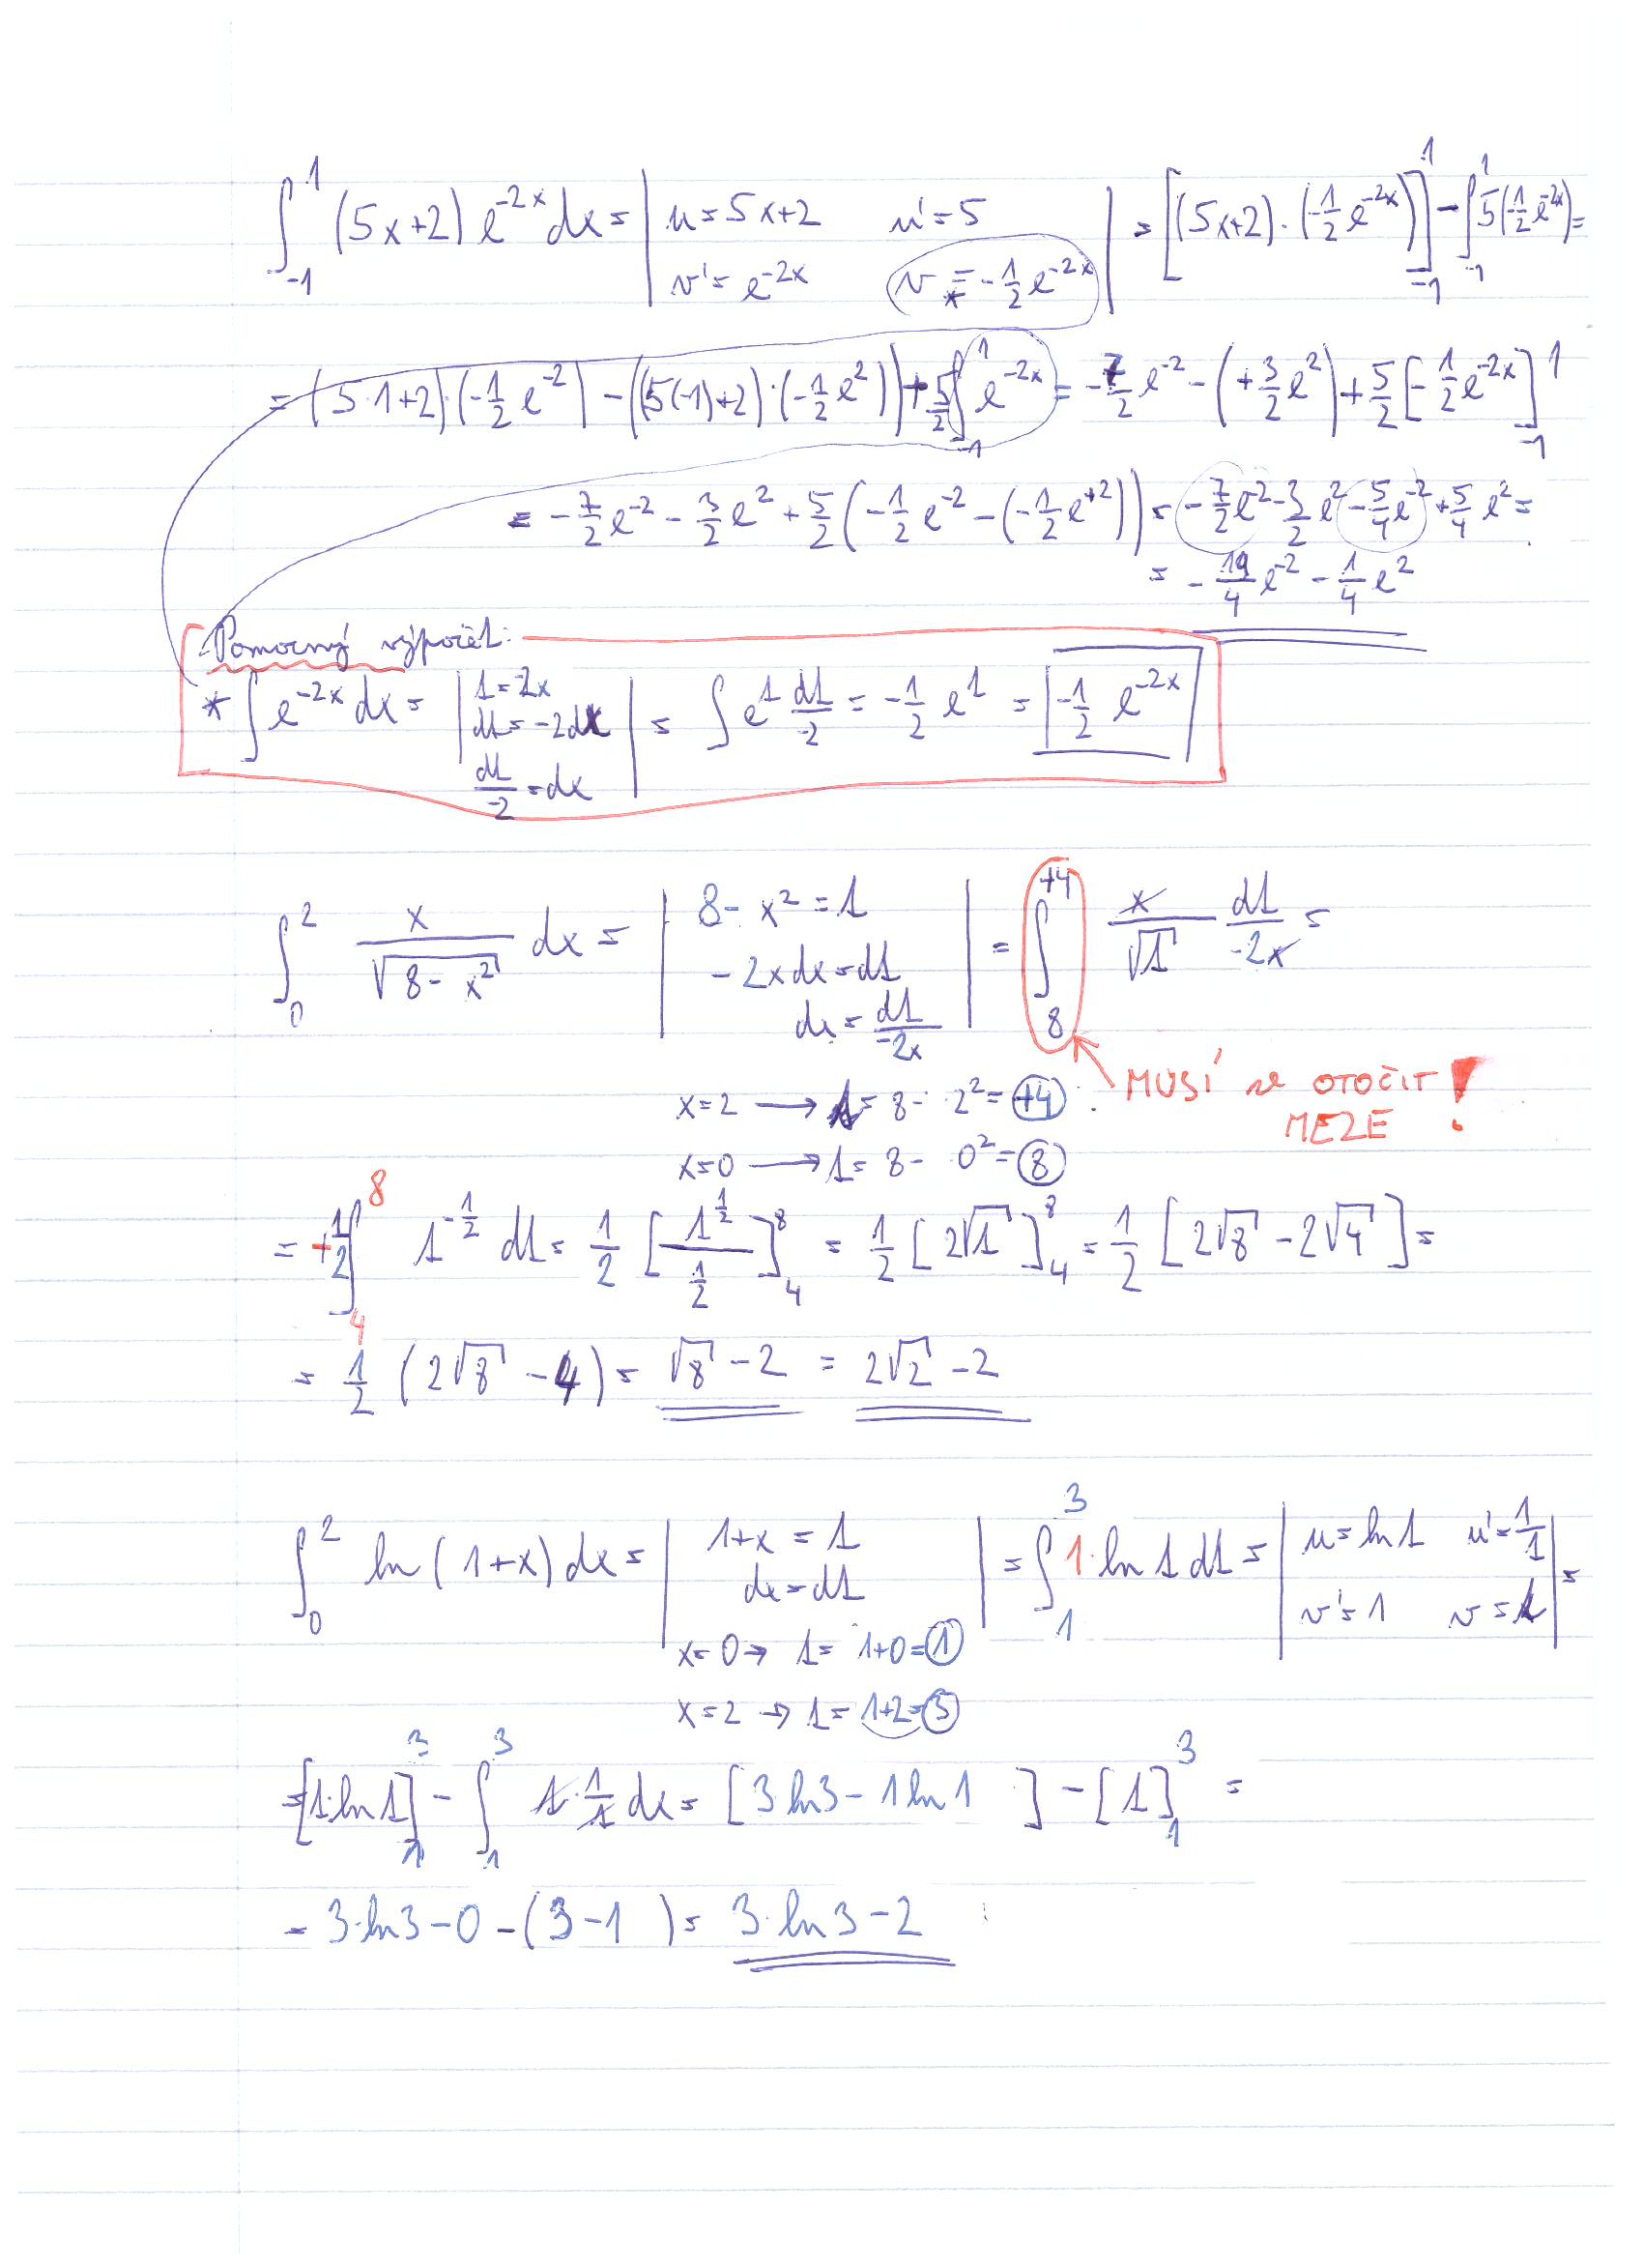 ∫_{-1}^{1} (5x+2) e^{-2x} dx = | u = 5x+2   u' = 5   v' = e^{-2x}   v =* -1/2 e^{-2x} | = [(5x+2)·(-1/2 e^{-2x})]_{-1}^{1} - ∫_{-1}^{1} 5(-1/2 e^{-2x}) =
= (5·1+2)·(-1/2 e^{-2}) - ((5(-1)+2)·(-1/2 e^{2})) + 5/2 ∫_{-1}^{1} e^{-2x} = -7/2 e^{-2} - (+3/2 e^{2}) + 5/2 [-1/2 e^{-2x}]_{-1}^{1}
= -7/2 e^{-2} - 3/2 e^{2} + 5/2 (-1/2 e^{-2} - (-1/2 e^{+2})) = -7/2 e^{-2} - 3/2 e^{2} - 5/4 e^{-2} + 5/4 e^{2} =
= -19/4 e^{-2} - 1/4 e^{2}
Pomocný výpočet:
* ∫ e^{-2x} dx = | t = -2x   dt = -2dx   dt/-2 = dx | = ∫ e^{t} dt/-2 = -1/2 e^{t} = -1/2 e^{-2x}
∫_{0}^{2} x/√(8-x²) dx = | 8-x² = t   -2x dx = dt   dx = dt/-2x | = ∫_{8}^{+4} x/√t dt/-2x =
MUSÍ se OTOČIT MEZE !
x=2 → t = 8 - 2² = +4
x=0 → t = 8 - 0² = 8
= +1/2 ∫_{4}^{8} t^{-1/2} dt = 1/2 [t^{1/2} / 1/2]_{4}^{8} = 1/2 [2√t]_{4}^{8} = 1/2 [2√8 - 2√4] =
= 1/2 (2√8 - 4) = √8 - 2 = 2√2 - 2
∫_{0}^{2} ln(1+x) dx = | 1+x = t   dx = dt | = ∫_{1}^{3} 1·ln t dt = | u = ln t   u' = 1/t   v' = 1   v = t | =
x=0 → t = 1+0 = 1
x=2 → t = 1+2 = 3
= [t·ln t]_{1}^{3} - ∫_{1}^{3} t·1/t dx = [3 ln3 - 1 ln1] - [t]_{1}^{3} =
= 3·ln3 - 0 - (3-1) = 3·ln3 - 2